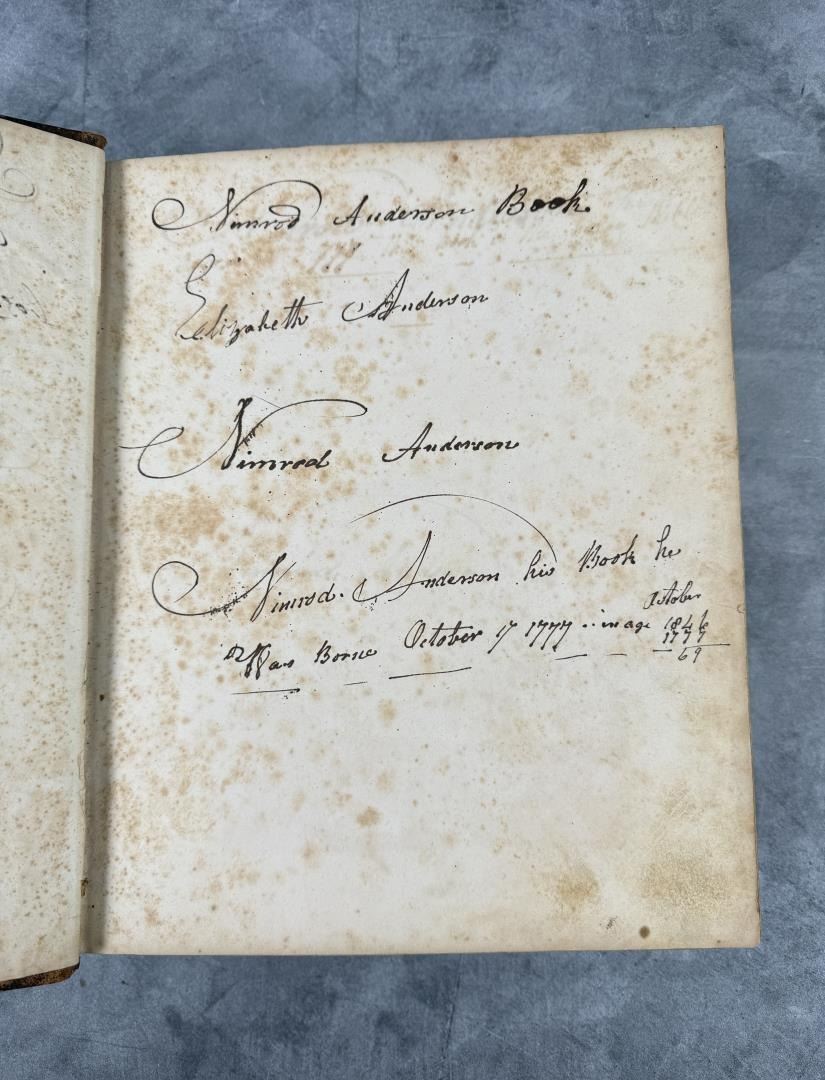 Nimrod Anderson Book.
Elizabeth Anderson
Nimrod Anderson
Nimrod. Anderson his Book he
October
Was Borne October 17 1777 in age 1846
1777
69